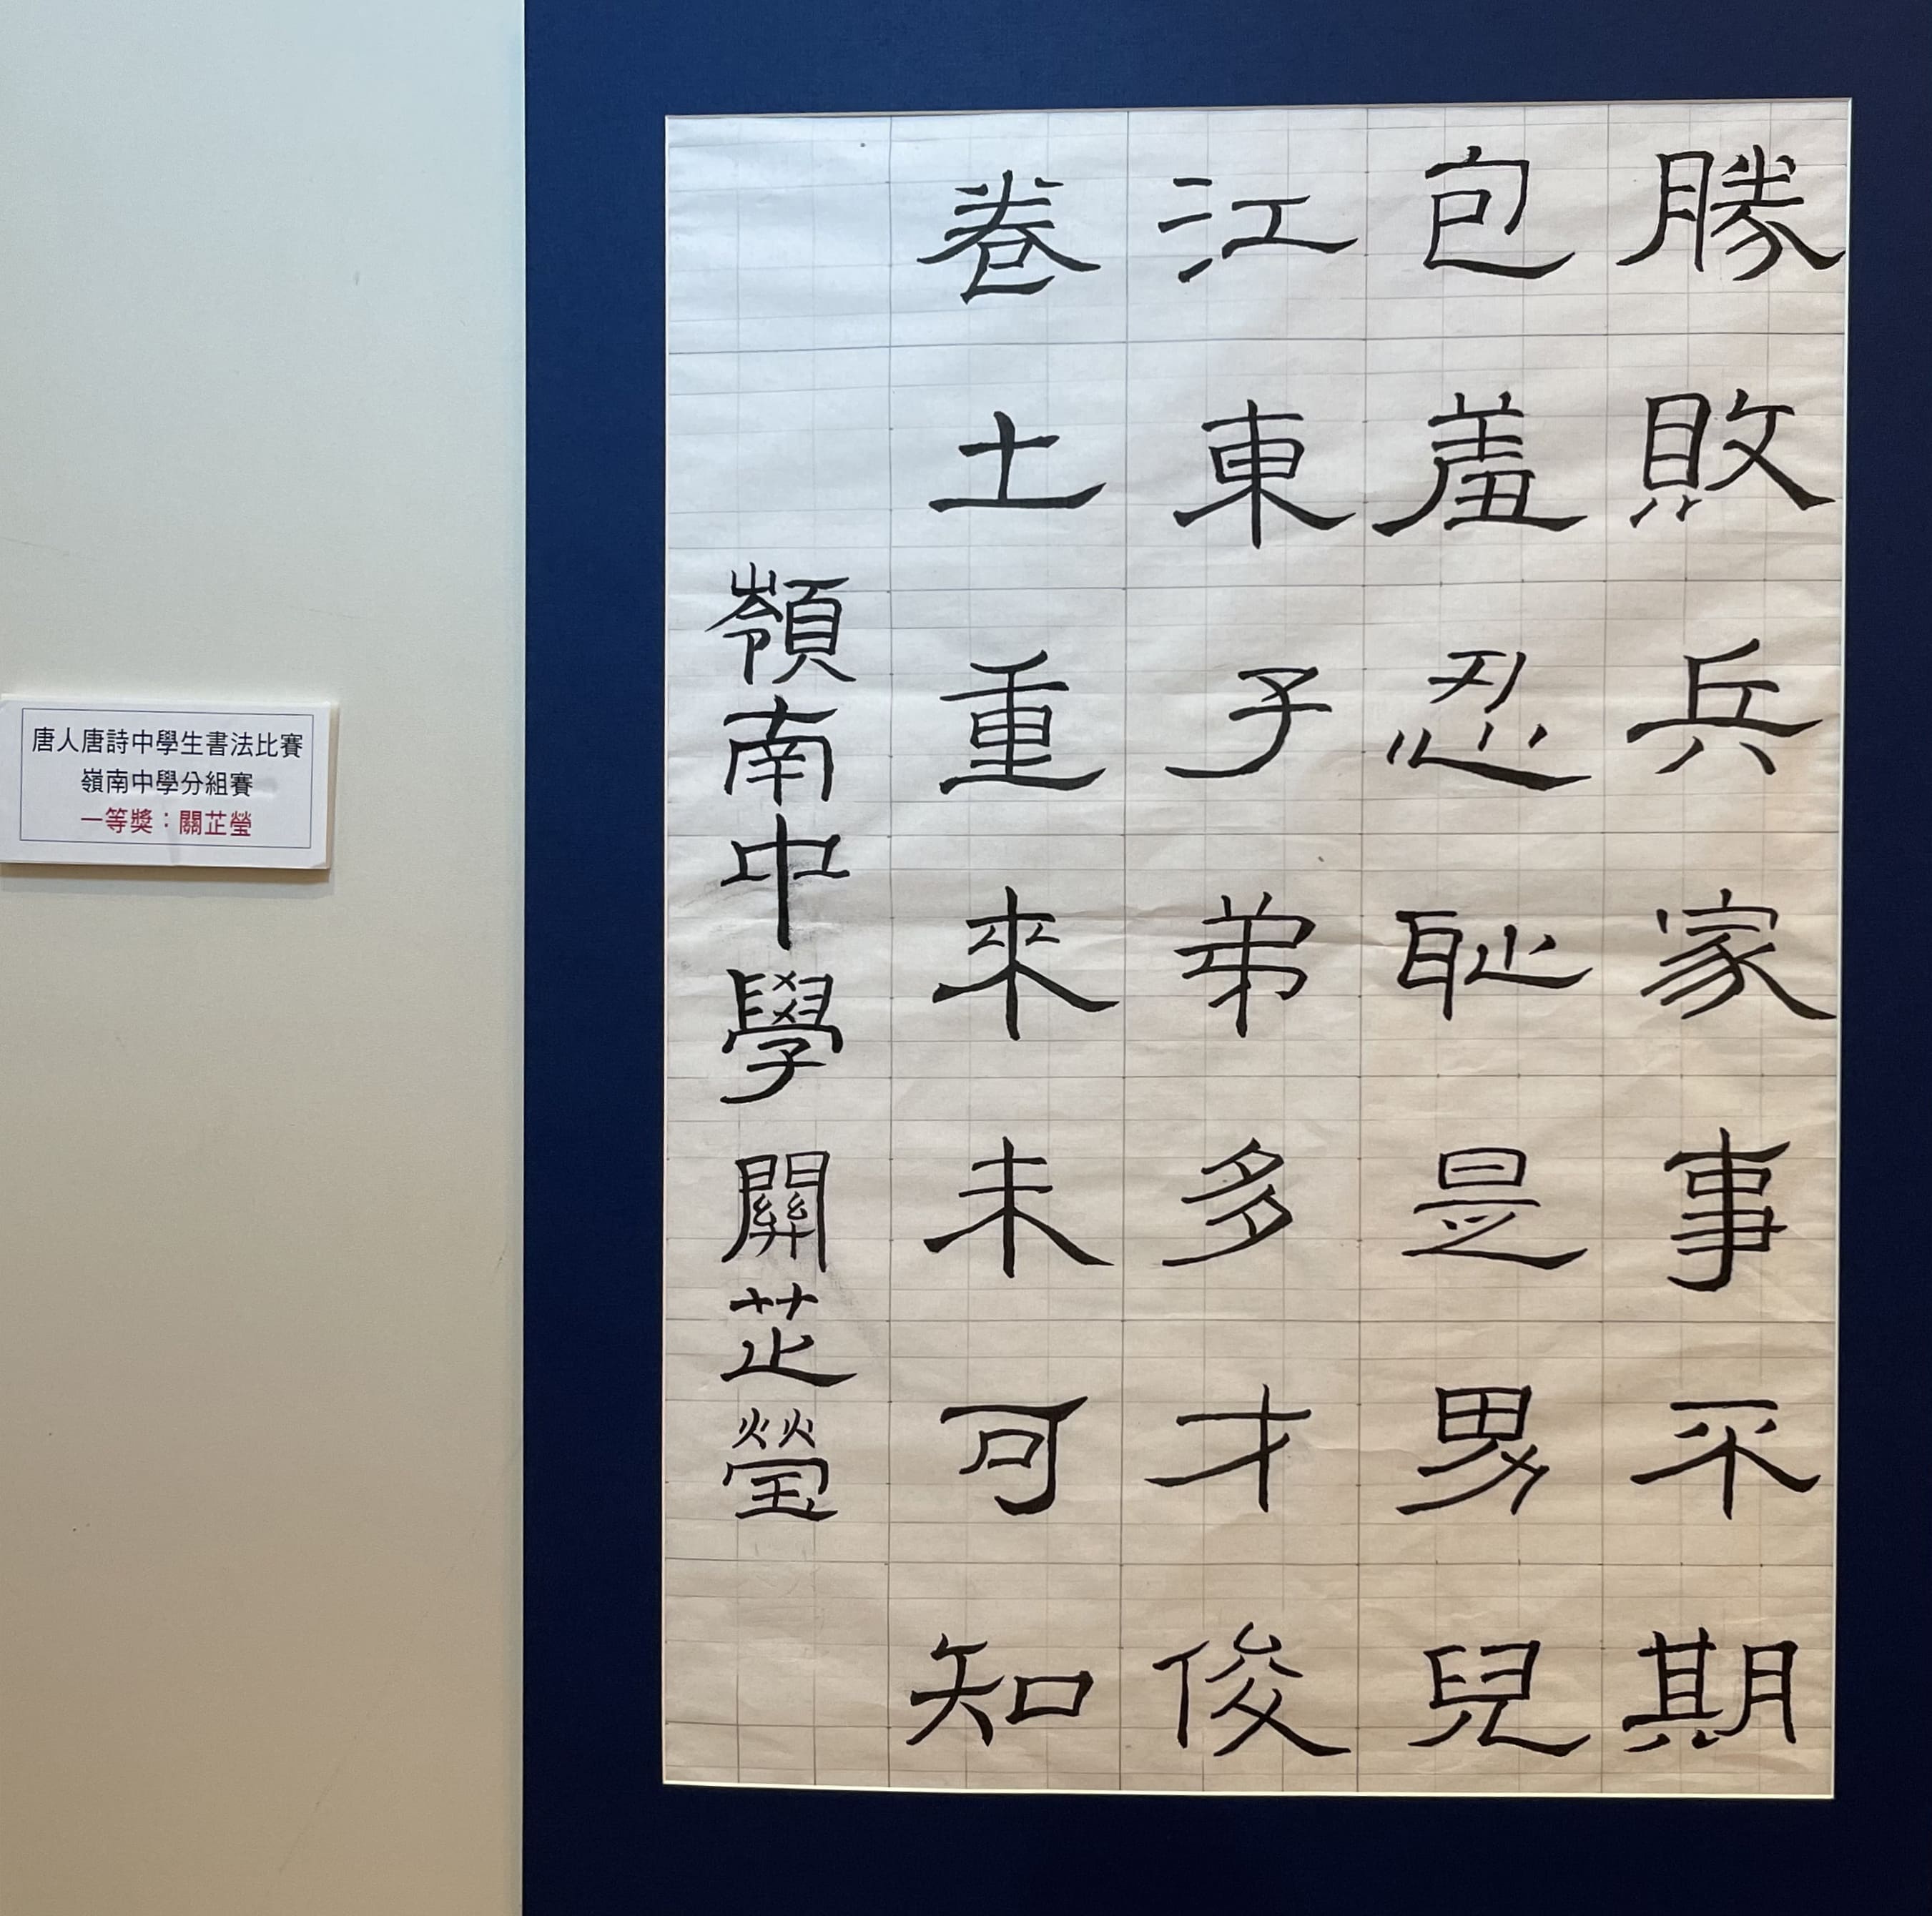 勝敗兵家事不期
包羞忍恥是男兒
江東子弟多才俊
卷土重來未可知
嶺南中學 關芷瑩
唐人唐詩中學生書法比賽
嶺南中學分組賽
一等獎：關芷瑩